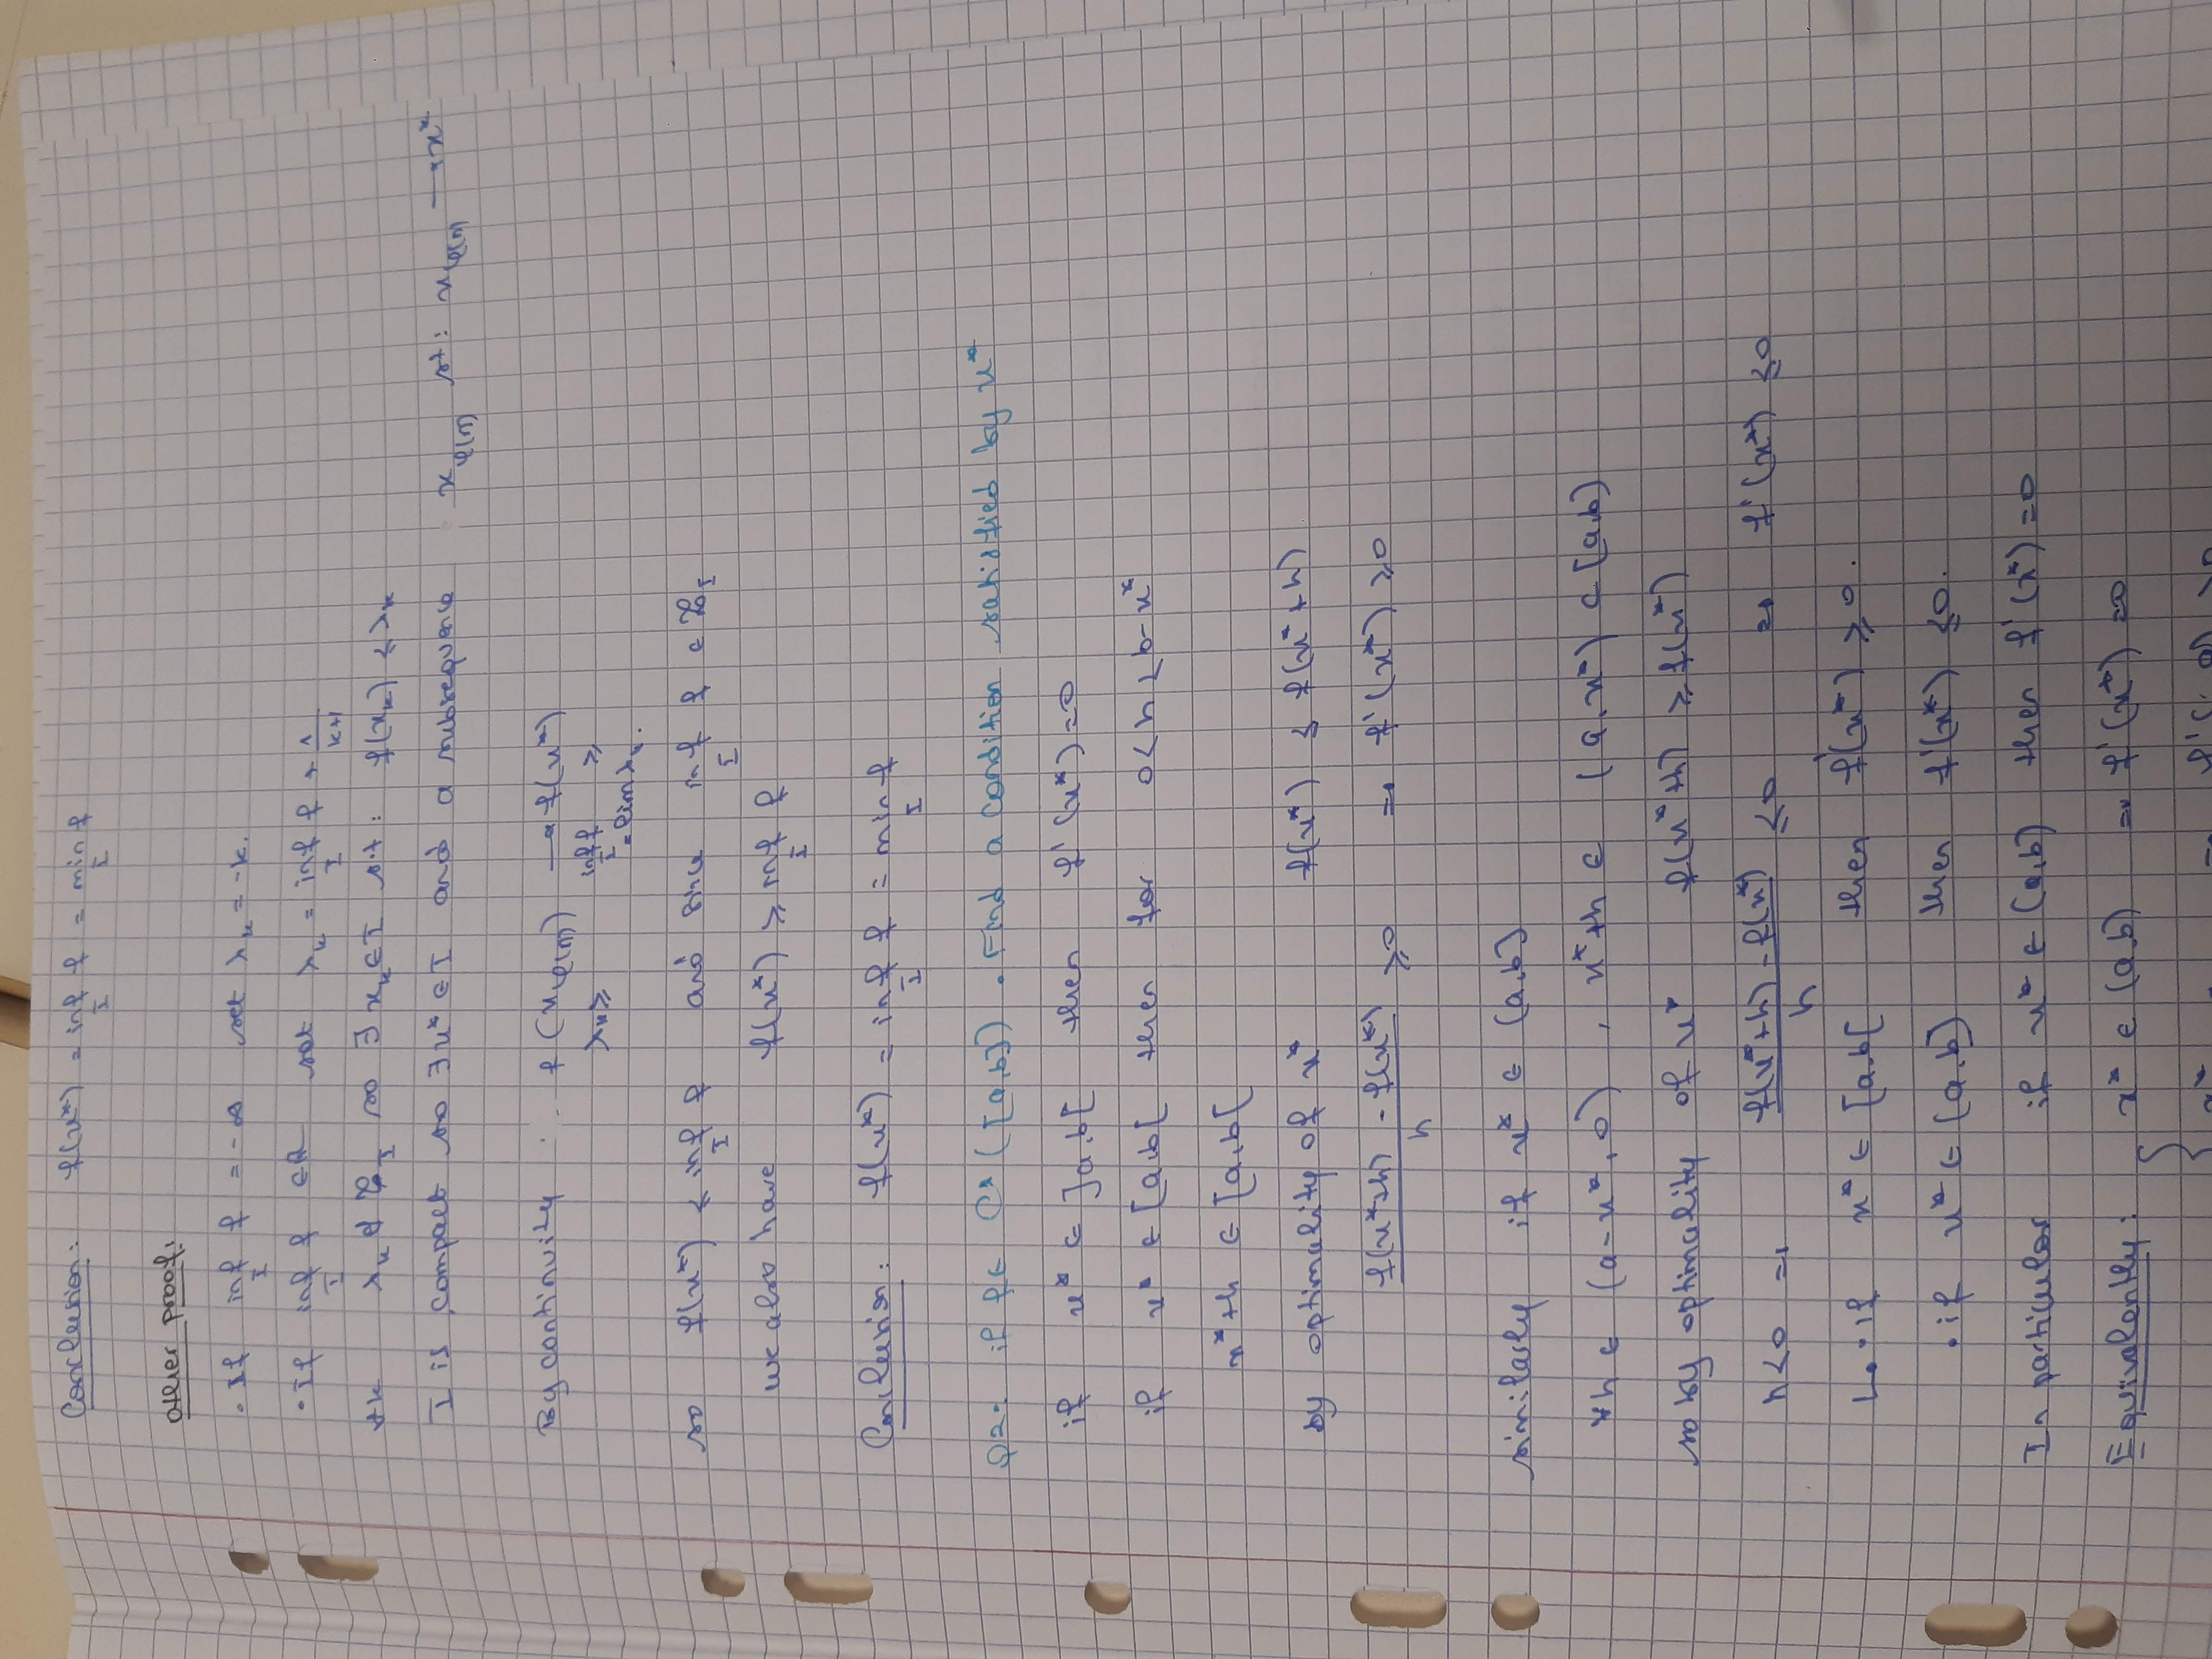 Conclusion: f(x*) = inf_I f = min_I f
other proof:
• If inf_I f = -∞ set λ_k = -k.
• If inf_I f ∈ ℝ set λ_k = inf_I f + 1/(k+1)
∀k λ_k ∉ ℒ_I so ∃ x_k ∈ I s.t: f(x_k) ≤ λ_k
I is compact so ∃ x* ∈ I and a subsequence x_φ(n) st: x_φ(n) → x*
By continuity : f(x_φ(n)) → f(x*)
λ_n ≥ inf_I f ≥
= lim λ_n.
so f(x*) ≤ inf_I f and since inf_I f ∈ ℒ_I
we also have f(x*) ≥ inf_I f
Conclusion: f(x*) = inf_I f = min_I f
Q2: if f ∈ C¹([a,b]). Find a condition satisfied by x*
if x* ∈ ]a,b[ then f'(x*) = 0
if x* ∈ [a,b[ then for 0 < h < b - x*
x* + h ∈ [a,b[
by optimality of x* f(x*) ≤ f(x* + h)
(f(x*+h) - f(x*))/h ≥ 0 ⇒ f'(x*) ≥ 0
similarly if x* ∈ (a,b]
∀h ∈ (a - x*, 0), x* + h ∈ (a, x*) ⊂ [a,b]
so by optimality of x* f(x*+h) ≥ f(x*)
h < 0 ⇒ (f(x*+h) - f(x*))/h ≤ 0 ⇒ f'(x*) ≤ 0
↳ • if x* ∈ [a,b[ then f'(x*) ≥ 0.
• if x* ∈ (a,b] then f'(x*) ≤ 0.
In particular if x* ∈ (a,b) then f'(x*) = 0
Equivalently: { x* ∈ (a,b) ⇒ f'(x*) = 0